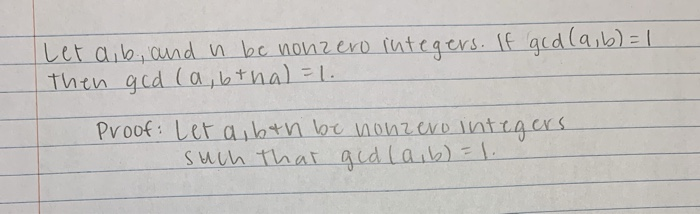 Let a,b, and n be nonzero integers. If gcd(a,b)=1
then gcd (a,b+na)=1.
Proof: Let a,b+n be nonzero integers
such that gcd(a,b)=1.